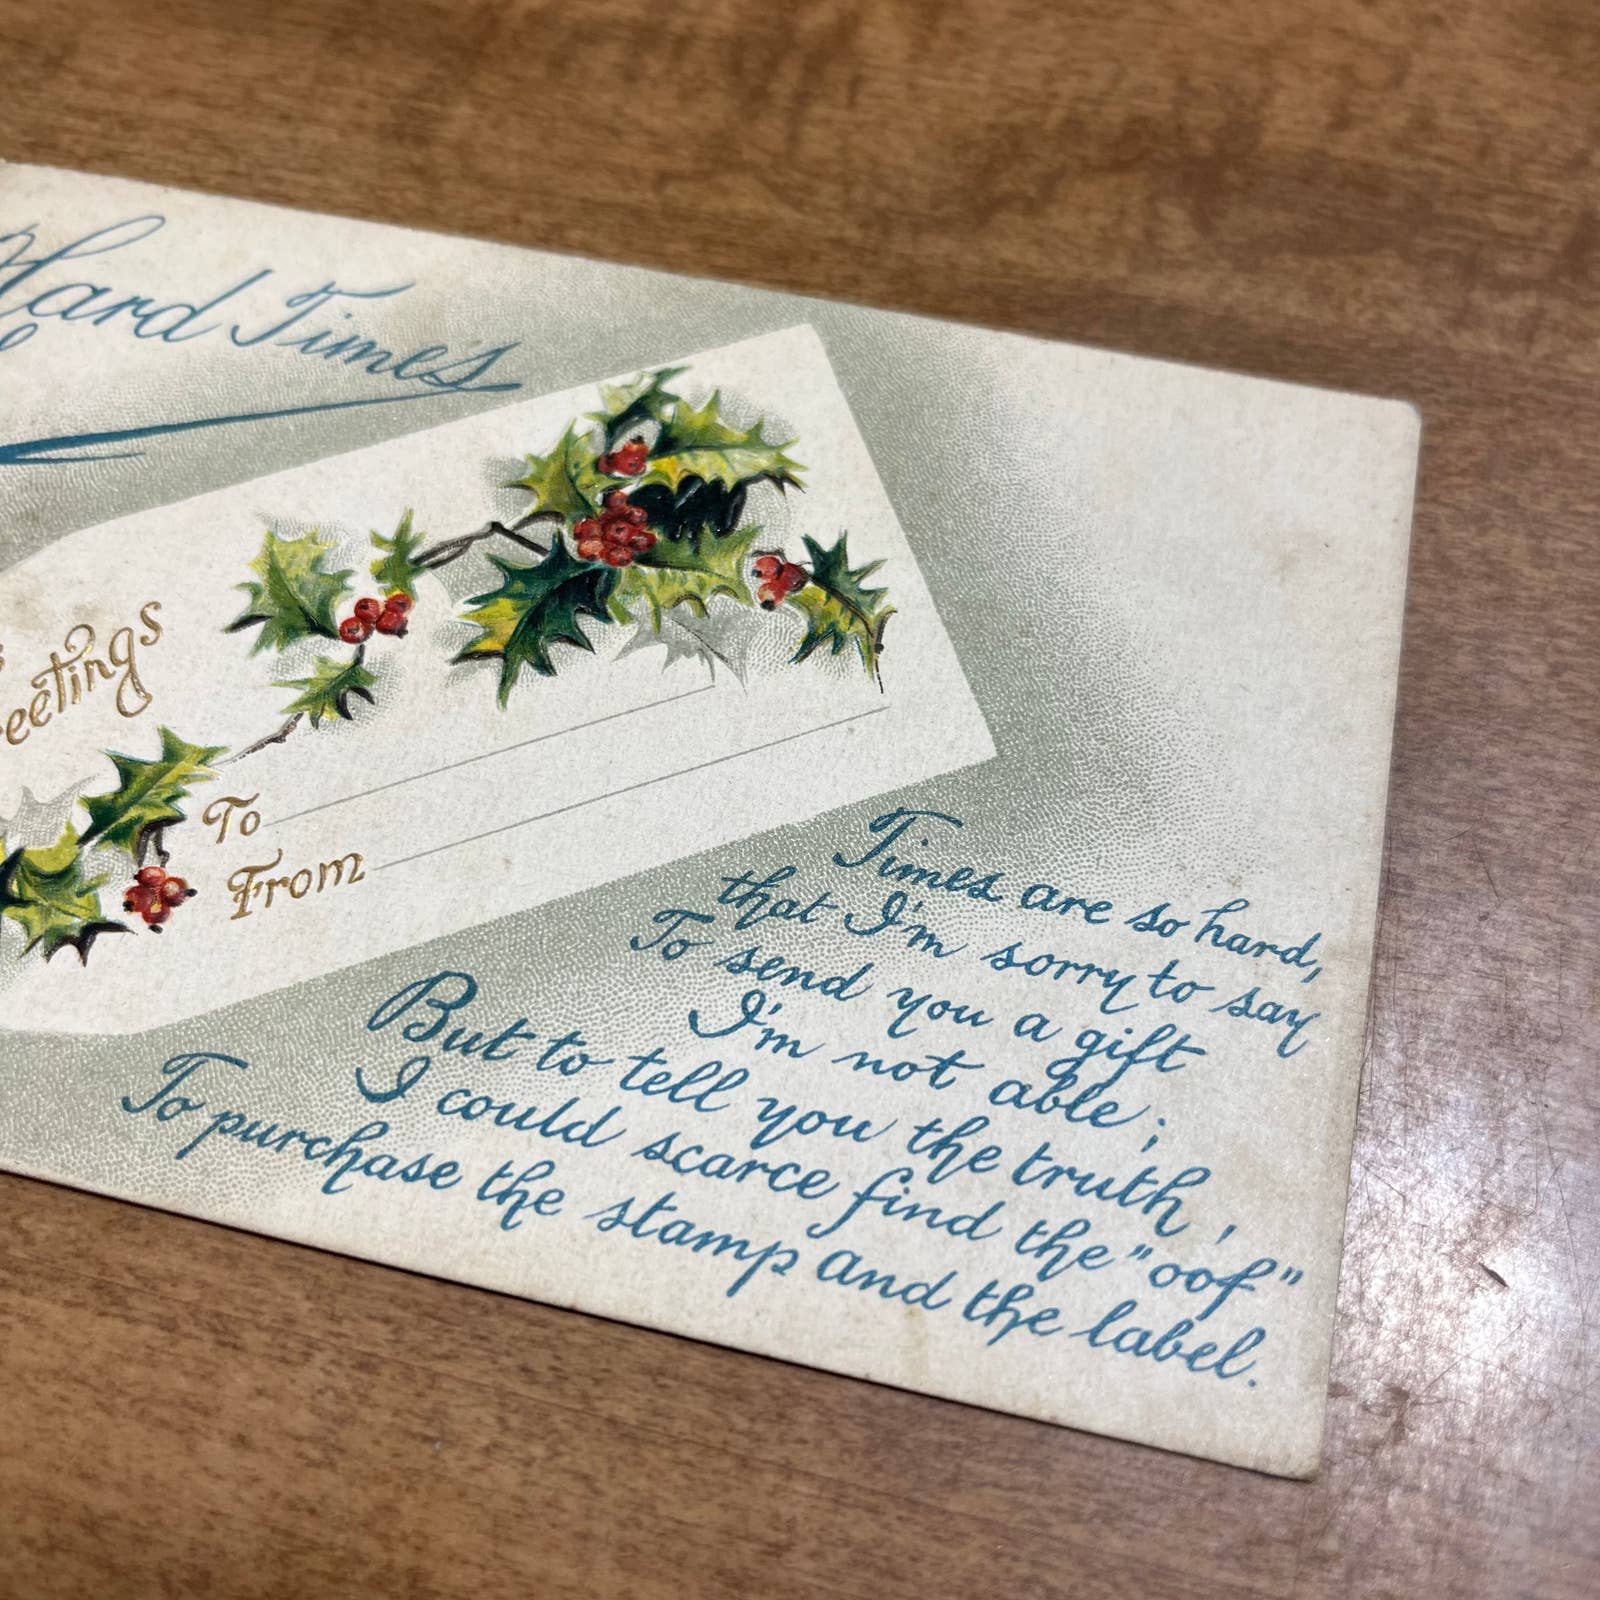 Hard Times
To
From
Times are so hard,
that I'm sorry to say
To send you a gift
I'm not able;
But to tell you the truth,
I could scarce find the "oof"
To purchase the stamp and the label.